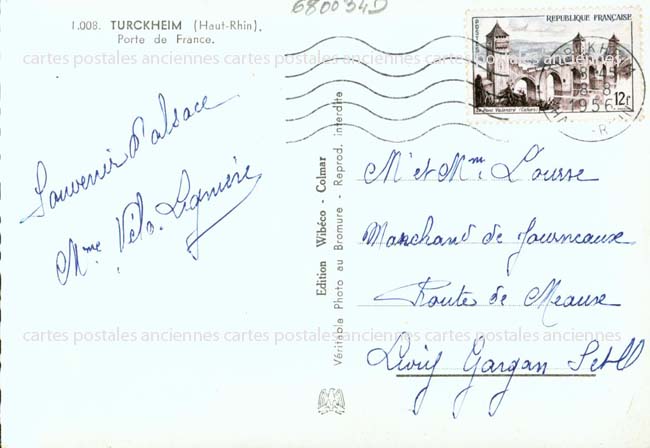 680034D
1.008. TURCKHEIM (Haut-Rhin).
Porte de France.
REPUBLIQUE FRANÇAISE
12f
1956
cartes postales anciennes cartes postales anciennes cartes postales anciennes
Souvenir d'alsace
Mme Véto
Edition Wibéco - Colmar
Véritable Photo au Bromure - Reprod. interdite
M et Mme Lourse
Marchand de Journeaux
Route de Meaux
cartes postales anciennes cartes postales anciennes cartes postales anciennes
Livry Gargan S et O